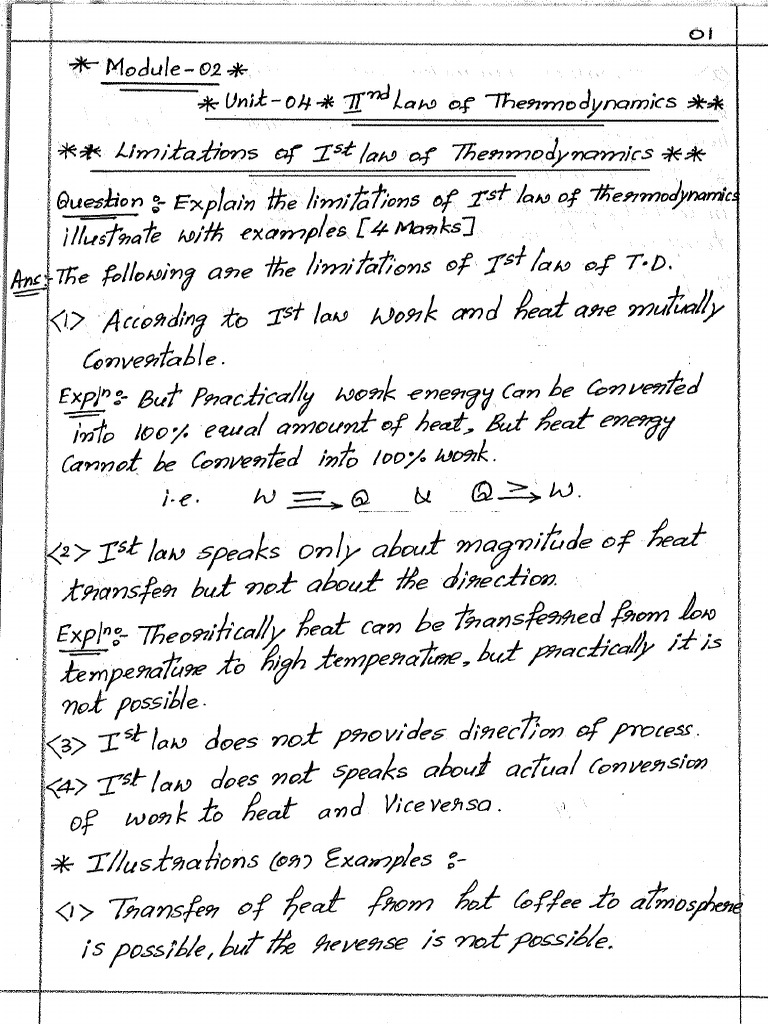 01
* Module-02 *
* Unit-04 * IInd Law of Thermodynamics **
** Limitations of Ist law of Thermodynamics **
Question :- Explain the limitations of Ist law of thermodynamics
illustrate with examples [4 Marks]
Ans:- The following are the limitations of Ist law of T.D.
<1> According to Ist law work and heat are mutually
Convertable.
Expln :- But Practically work energy Can be Converted
into 100% equal amount of heat, But heat energy
Cannot be Converted into 100% work.
i.e. W Q & Q W.
<2> Ist law speaks only about magnitude of heat
transfer but not about the direction.
Expln :- Theoritically heat can be transferred from low
temperature to high temperature, but practically it is
not possible.
<3> Ist law does not provides direction of process.
<4> Ist law does not speaks about actual conversion
of work to heat and Viceversa.
* Illustrations (or) Examples :-
<1> Transfer of heat from hot Coffee to atmosphere
is possible, but the reverse is not possible.